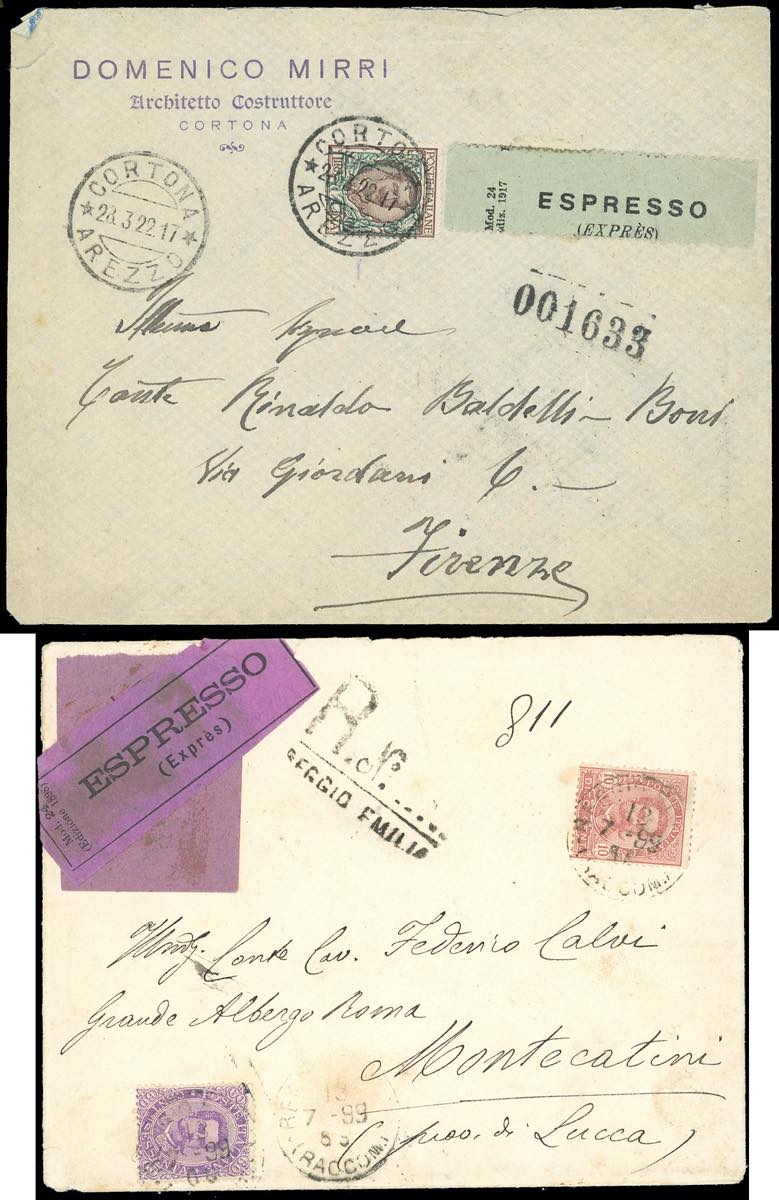 DOMENICO MIRRI
Architetto Costruttore
CORTONA
CORTONA
28.3.22.17
AREZZO
CORTONA
AREZZO
POSTE ITALIANE
Mod. 24
ediz. 1917
ESPRESSO
(EXPRÈS)
001633
Conte Rinaldo Baldelli-Boni
Via Giordani 6.-
Firenze
ESPRESSO
(Exprès)
Mod. 24
(Edizione 1898)
R.
REGGIO EMILIA
811
10
10
12
7 -99
(RACCOM)
Conte Cav. Federico Calvi
Grande Albergo Roma
Montecatini
(prov. di Lucca)
7 -99
(RACCOM)